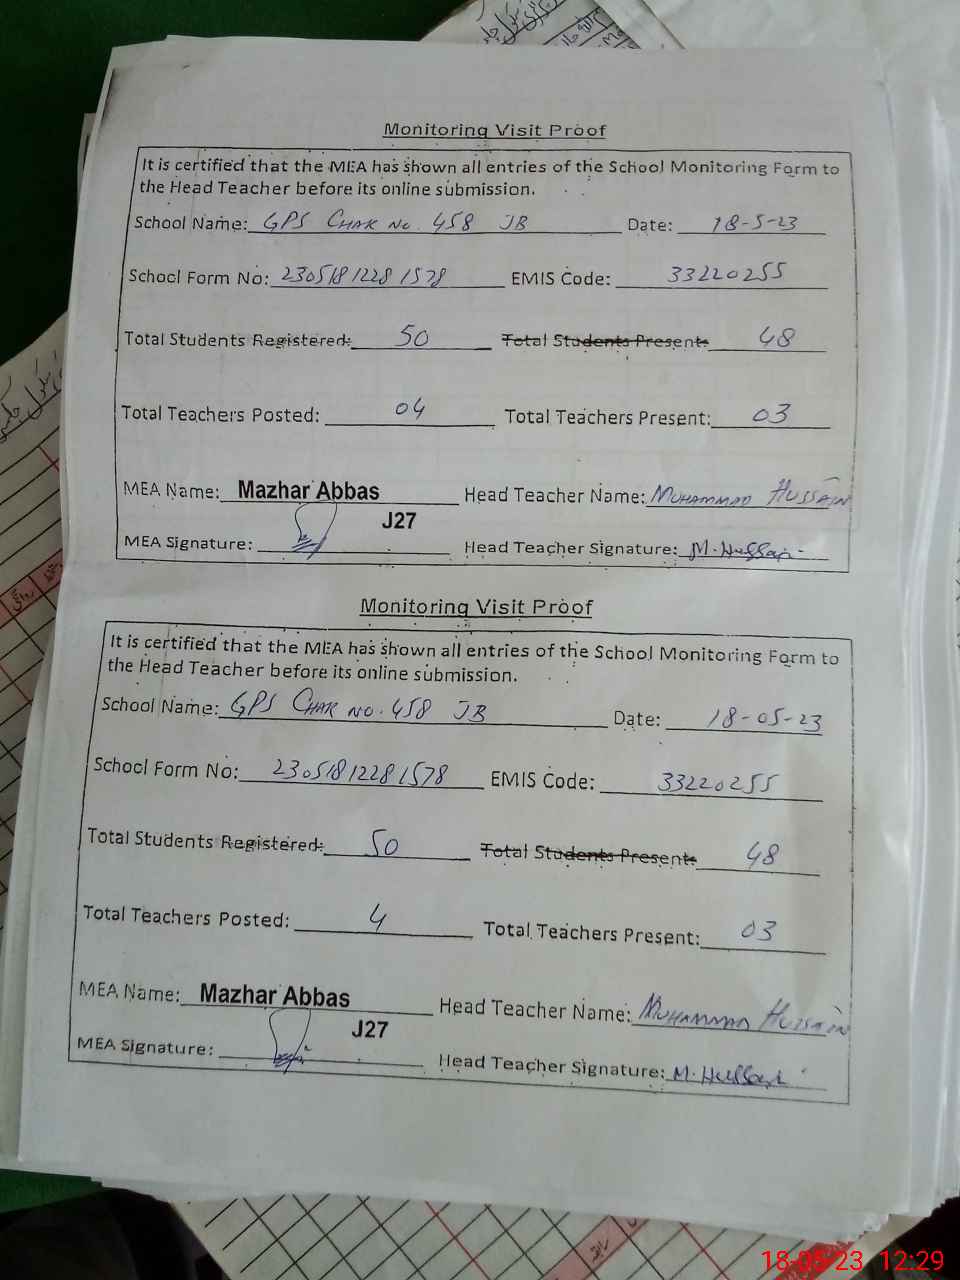 Monitoring Visit Proof
It is certified that the MEA has shown all entries of the School Monitoring Form to
the Head Teacher before its online submission.
School Name: GPS CHAK NO. 458 JB Date: 18-5-23
School Form No: 2305181228 1578 EMIS Code: 33220255
Total Students Registered: 50 Total Students Present: 48
Total Teachers Posted: 04 Total Teachers Present: 03
MEA Name: Mazhar Abbas Head Teacher Name: MUHAMMAD HUSSAIN
J27
MEA Signature: Head Teacher Signature: M. Hussain
Monitoring Visit Proof
It is certified that the MEA has shown all entries of the School Monitoring Form to
the Head Teacher before its online submission.
School Name: GPS CHAK NO. 458 JB Date: 18-05-23
School Form No: 2305181228 1578 EMIS Code: 33220255
Total Students Registered: 50 Total Students Present: 48
Total Teachers Posted: 4 Total Teachers Present: 03
MEA Name: Mazhar Abbas Head Teacher Name: MUHAMMAD HUSSAIN
J27
MEA Signature: Head Teacher Signature: M. Hussain
18-05-23 12:29